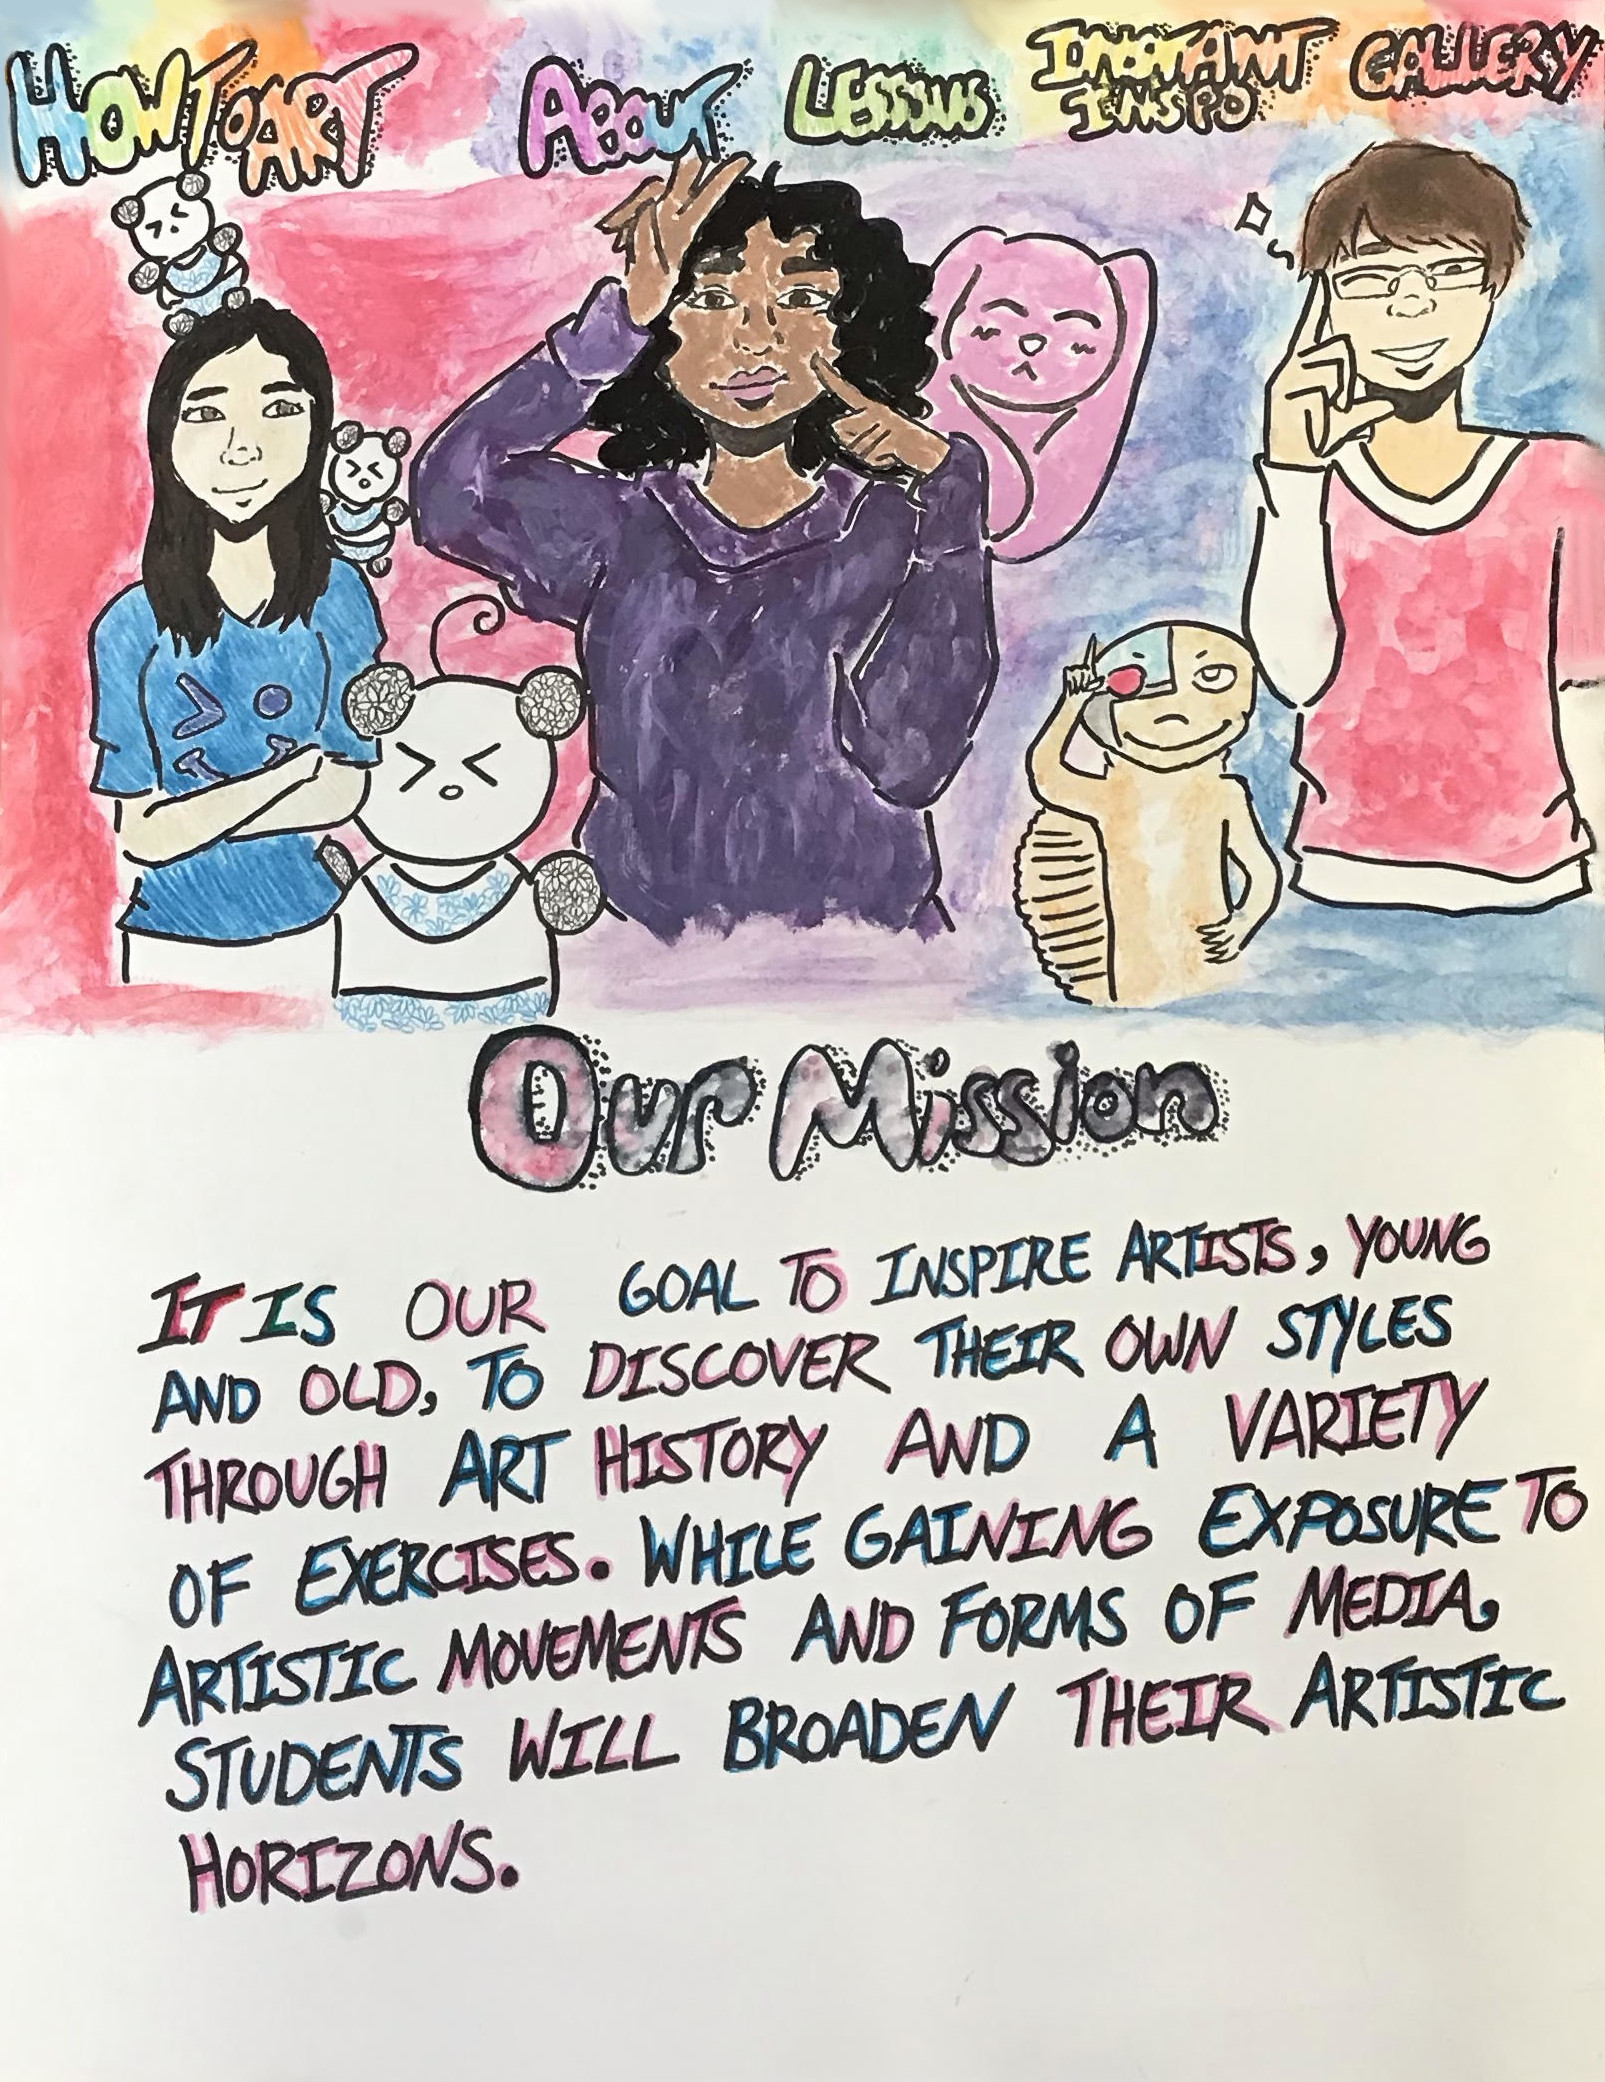 HOW TO ART ABOUT LESSONS INSTANT INSPO GALLERY
OUR MISSION
IT IS OUR GOAL TO INSPIRE ARTISTS, YOUNG
AND OLD, TO DISCOVER THEIR OWN STYLES
THROUGH ART HISTORY AND A VARIETY
OF EXERCISES. WHILE GAINING EXPOSURE TO
ARTISTIC MOVEMENTS AND FORMS OF MEDIA,
STUDENTS WILL BROADEN THEIR ARTISTIC
HORIZONS.